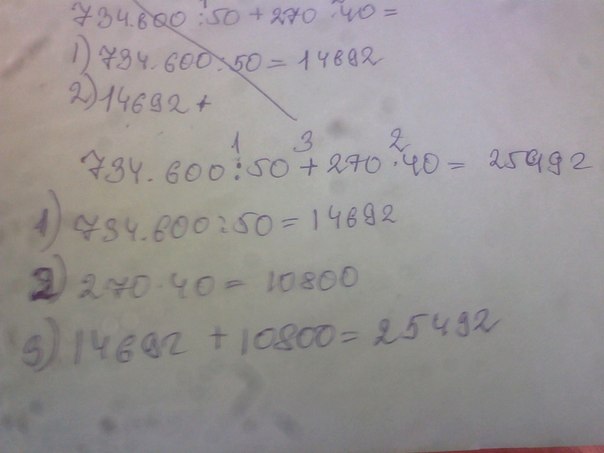 734.600:50+270·40=
1) 734.600:50=14692
2) 14692+
1 3 2
734.600:50+270·40= 25492
1) 734.600:50=14692
2) 270·40= 10800
3) 14692 + 10800= 25492